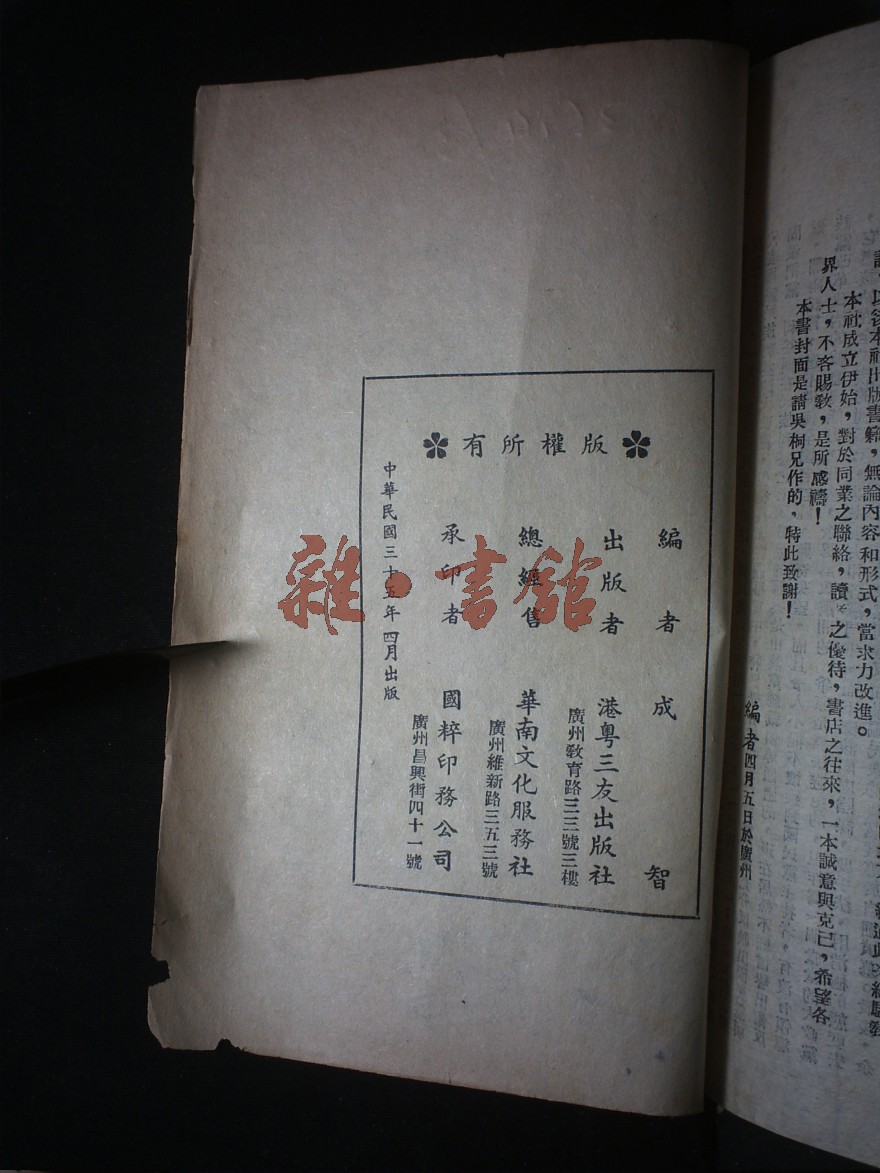 以後本社出版書籍，無論內容和形式，當求力改進。
本社成立伊始，對於同業之聯絡，讀 之優待，書店之往來，一本誠意與克己，希望各
界人士，不吝賜敎，是所感禱！
本書封面是請吳桐兄作的，特此致謝！
編者四月五日於廣州
版權所有
編者 成智
出版者 港粤三友出版社
廣州敎育路三三號三樓
總經售 華南文化服務社
廣州維新路三五三號
承印者 國粹印務公司
廣州昌興街四十一號
中華民國三十五年四月出版
雜·書館